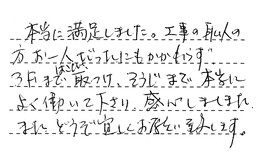 本当に満足しました。工事の職人の
方お一人だったにもかかわらず
3Fまで運こび、取つけ、そうじまで本当に
よく働いて下さり感心しましました
またどうぞ宜しくお願い致します。